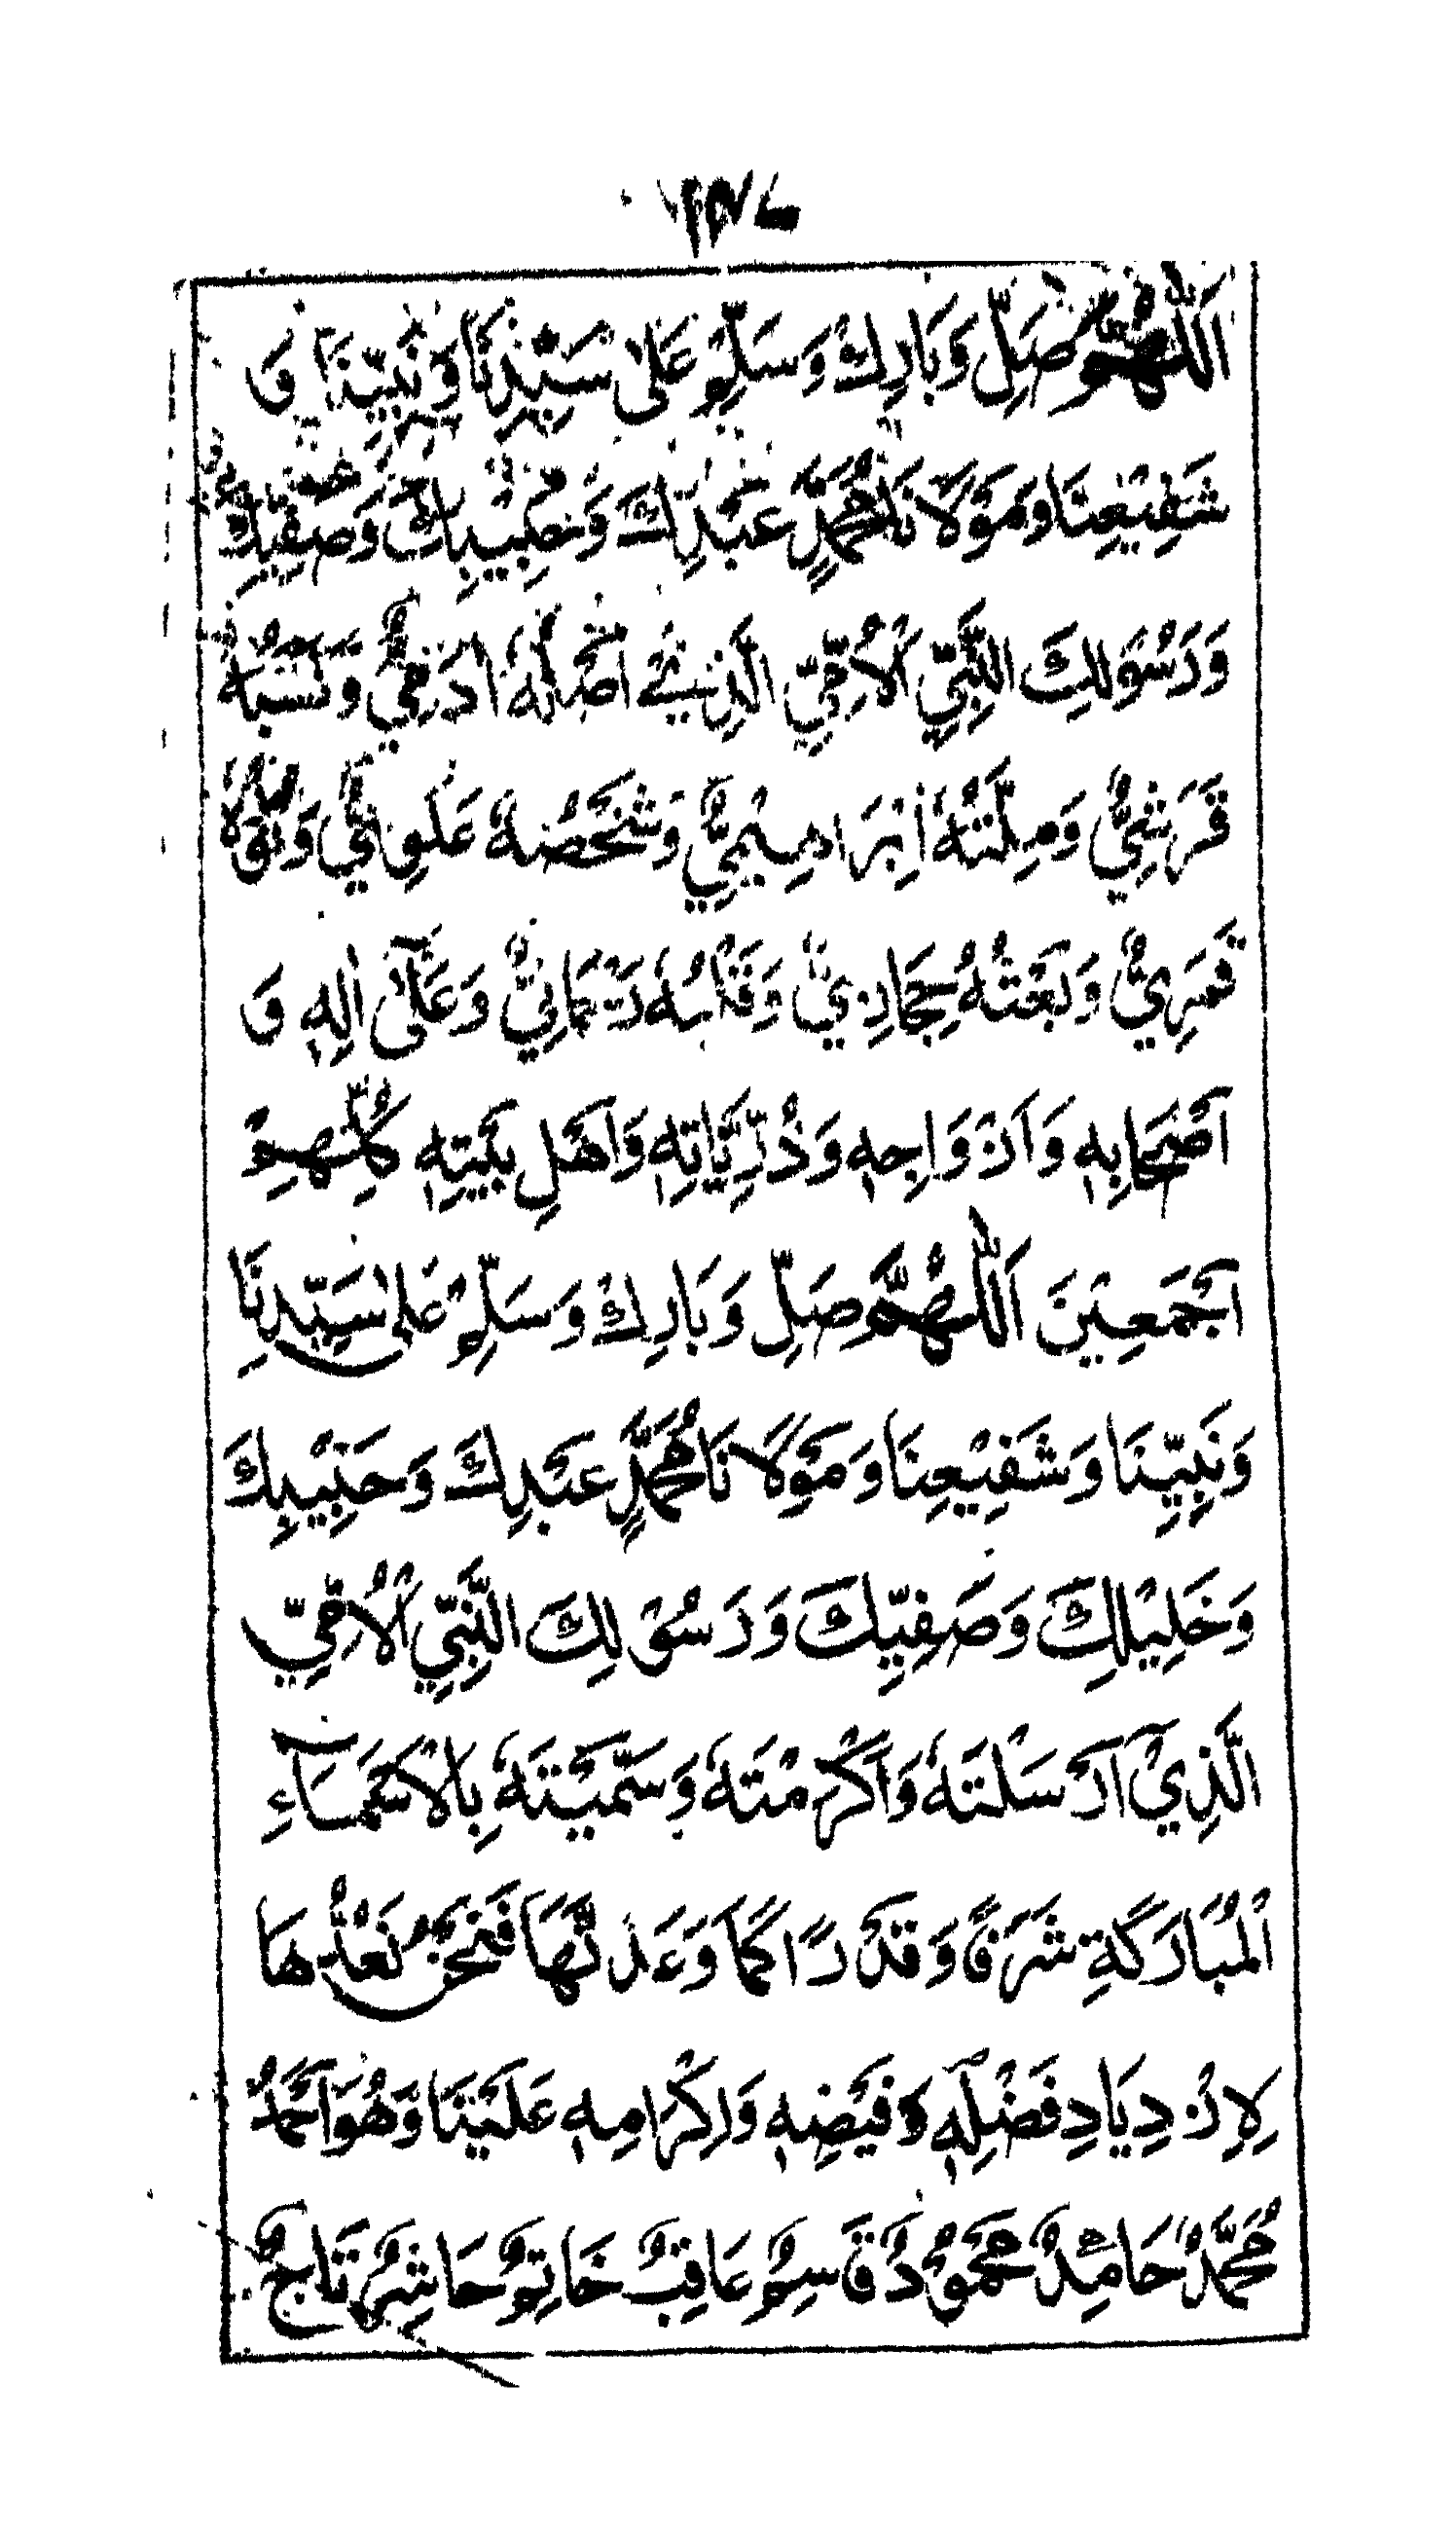 اَللّٰهُمَّ صَلِّ وَبَارِكْ وَسَلِّمْ عَلٰى سَيِّدِنَا وَنَبِيِّنَا وَ
شَفِيْعِنَا وَمَوْلَانَا مُحَمَّدٍ عَبْدِكَ وَحَبِيْبِكَ وَصَفِيِّكَ
وَرَسُوْلِكَ النَّبِيِّ الْاُمِّيِّ الَّذِيْ اَصْلُهُ اٰدَمِيٌّ وَنَسَبُهُ
قَرَشِيٌّ وَمِلَّتُهُ اِبْرَاهِيْمِيٌّ وَشَخْصُهُ عَلَوِيٌّ وَنُوْرُهُ
قَمَرِيٌّ وَبَعْثُهُ حِجَازِيٌّ وَقَلْبُهُ رَحْمَانِيٌّ وَعَلٰٓى اٰلِهٖ وَ
اَصْحَابِهٖ وَاَزْوَاجِهٖ وَذُرِّيَّاتِهٖ وَاَهْلِ بَيْتِهٖ كُلِّهِمْ
اَجْمَعِيْنَ اَللّٰهُمَّ صَلِّ وَبَارِكْ وَسَلِّمْ عَلٰى سَيِّدِنَا
وَنَبِيِّنَا وَشَفِيْعِنَا وَمَوْلَانَا مُحَمَّدٍ عَبْدِكَ وَحَبِيْبِكَ
وَخَلِيْلِكَ وَصَفِيِّكَ وَرَسُوْلِكَ النَّبِيِّ الْاُمِّيِّ
الَّذِيْ اَرْسَلْتَهُ وَاَكْرَمْتَهُ وَسَمَّيْتَهُ بِالْاَسْمَآءِ
الْمُبَارَكَةِ شَرَفًا وَقَدْرًا كَمَا وَعَدْتَهَا فَنَحْنُ نَعُدُّهَا
لِازْدِيَادِ فَضْلِهٖ وَفَيْضِهٖ وَاِكْرَامِهٖ عَلَيْنَا وَهُوَ اَحْمَدُ
مُحَمَّدٌ حَامِدٌ مَحْمُوْدٌ قَاسِمٌ عَاقِبٌ خَاتِمٌ حَاشِرٌ تَاجٌ